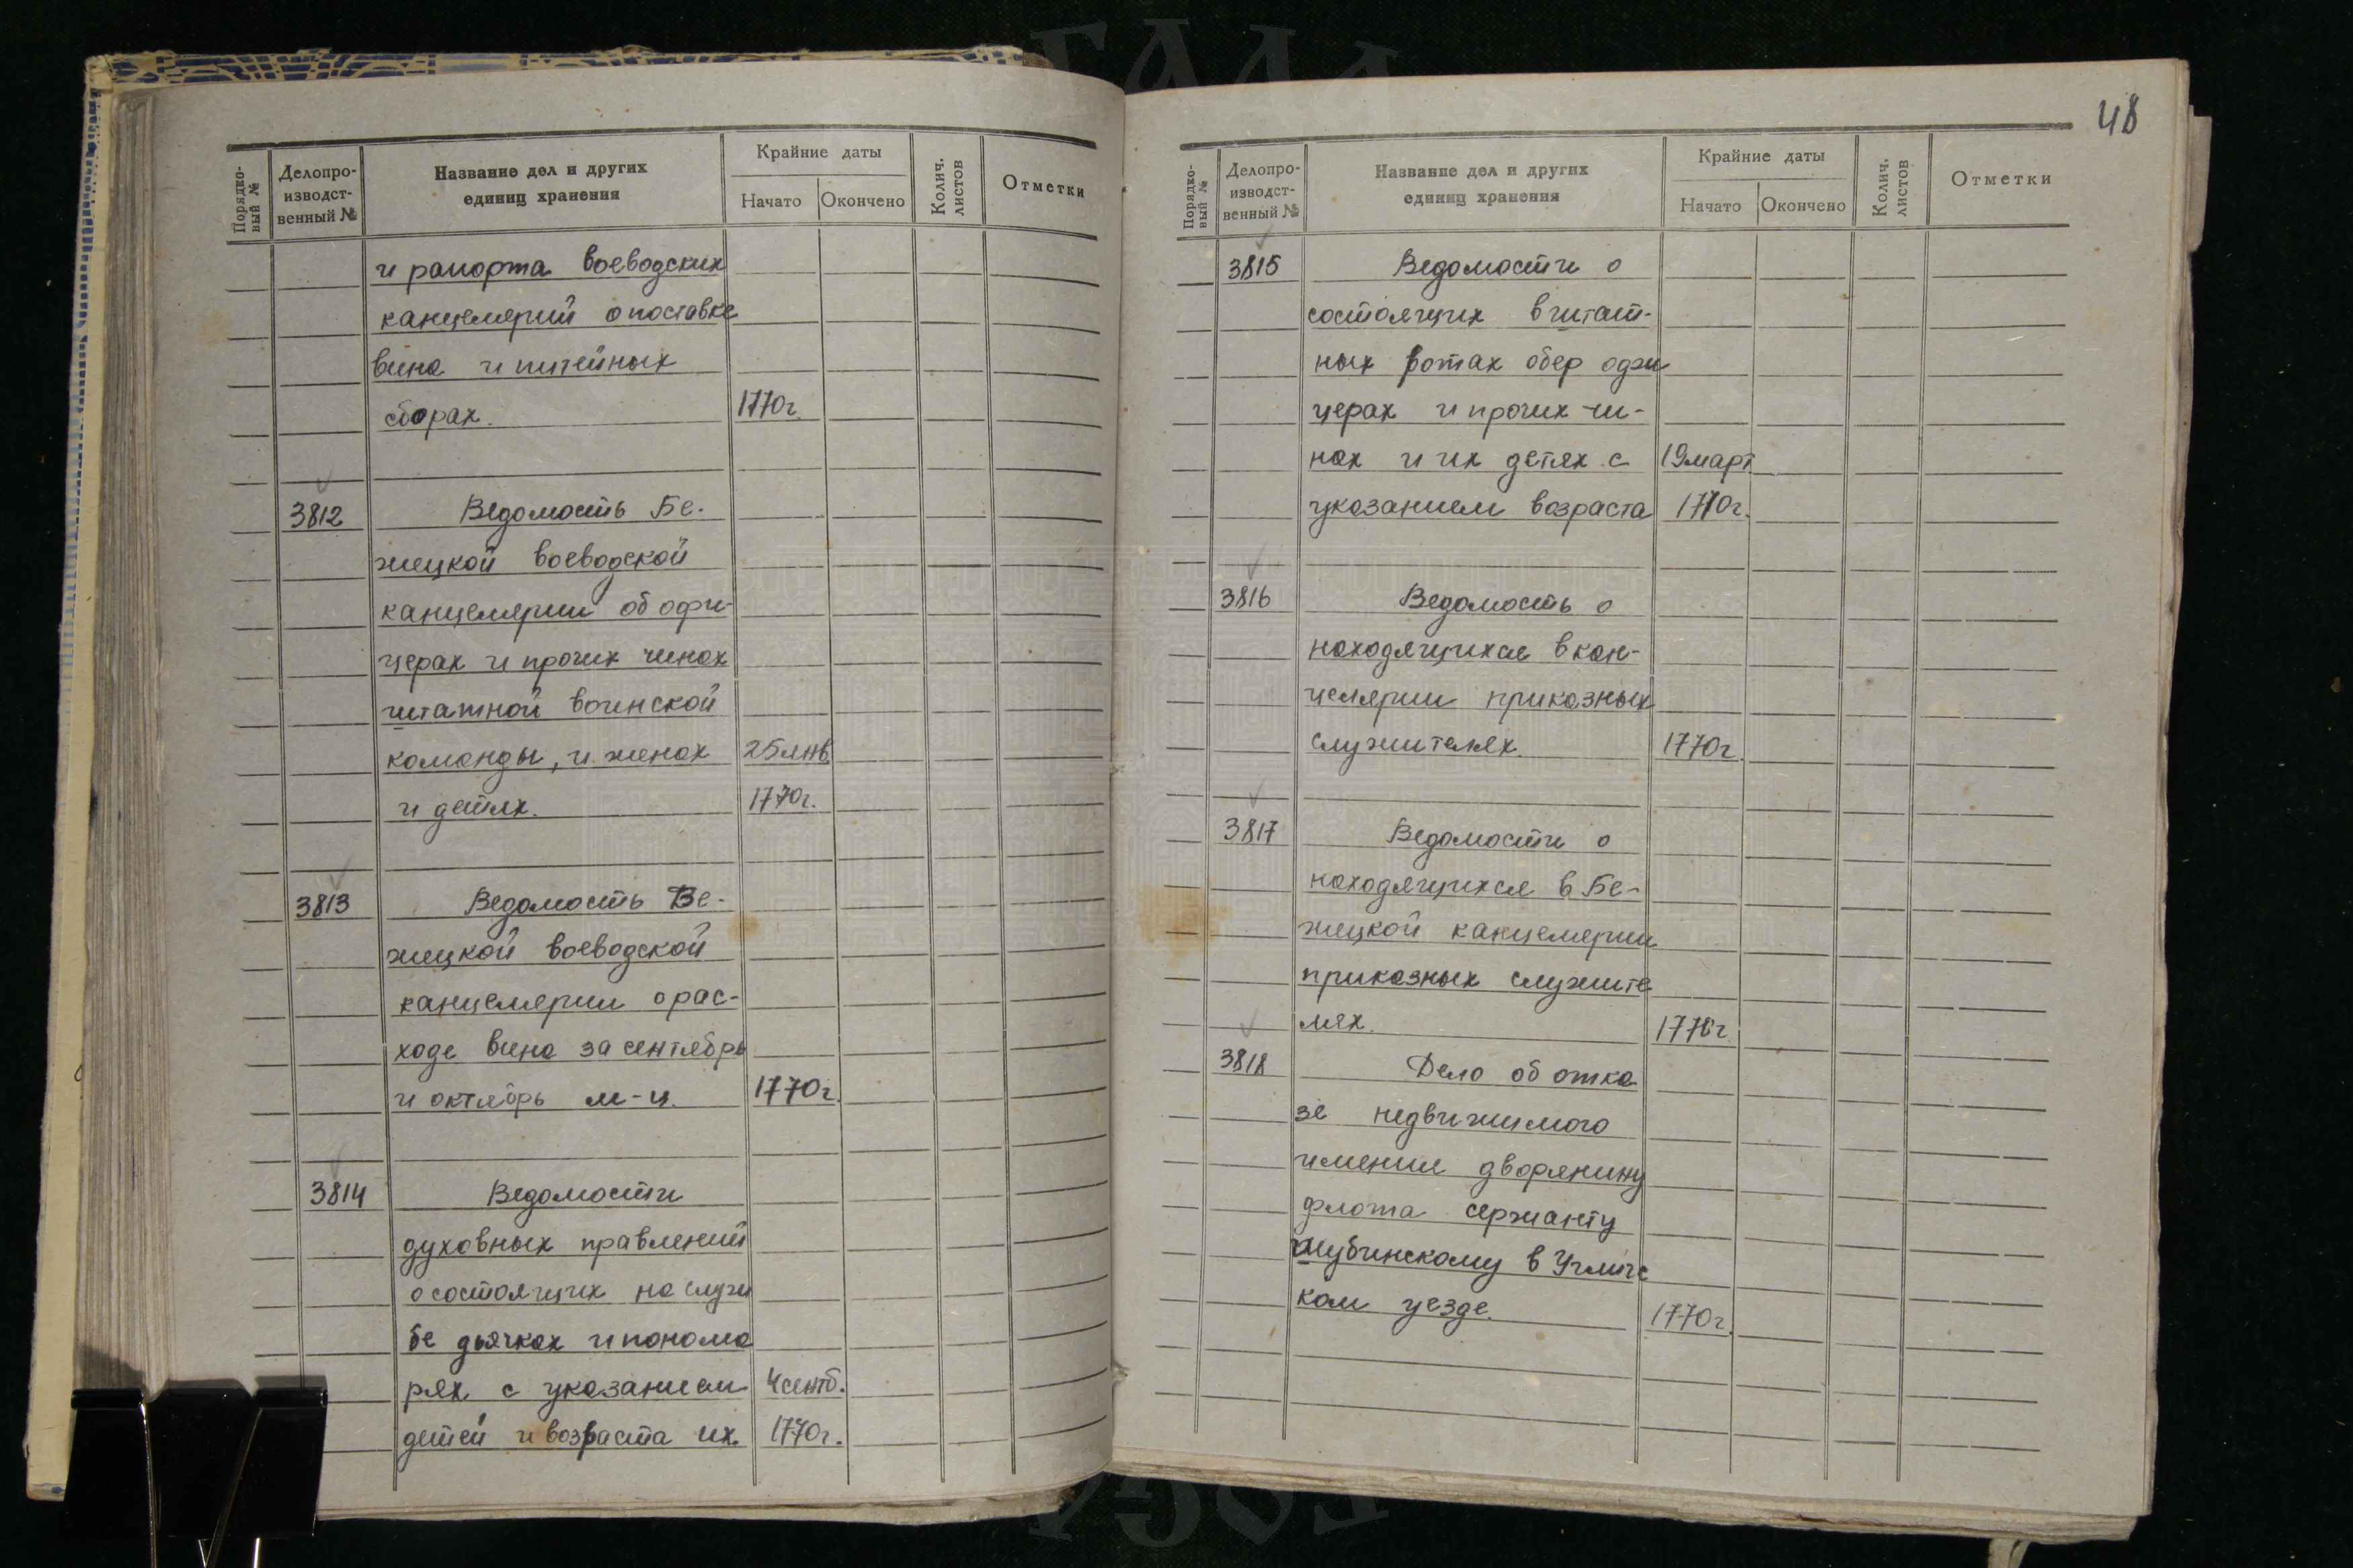 Порядко-
вый №
Делопро-
изводст-
венный №
Название дел и других
единиц хранения
Крайние даты
Начато
Окончено
Колич.
листов
Отметки
и рапорта воеводских
канцелярий о поставке
вина и питейных
сборах. 1770г.
3812 Ведомость Бе-
жецкой воеводской
канцелярии об офи-
церах и прочих чинах
штатной воинской
команды, и женах 25 янв.
и детях. 1770г.
3813 Ведомость Бе-
жецкой воеводской
канцелярии о рас-
ходе вина за сентябрь
и октябрь м-ц. 1770г.
3814 Ведомости
духовных правлений
о состоящих на служ
бе дьячках и понома
рях с указанием 4 сентб.
детей и возраста их. 1770г.
48
Порядко-
вый №
Делопро-
изводст-
венный №
Название дел и других
единиц хранения
Крайние даты
Начато
Окончено
Колич.
листов
Отметки
3815 Ведомости о
состоящих в штат-
ных ротах обер офи
церах и прочих чи-
нах и их детях с 19 март
указанием возраста 1770г.
3816 Ведомость о
находящихся в кан-
целярии приказных
служителях. 1770г.
3817 Ведомости о
находящихся в Бе-
жецкой канцелярии
приказных служите
лях. 1770г.
3818 Дело об отка
зе недвижимого
имения дворянину
флота сержанту
Шубинскому в Угличс
ком уезде. 1770г.